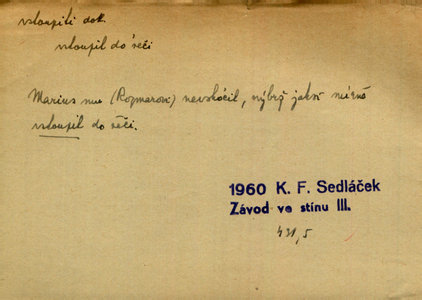 vstoupiti dok.
vstoupil do řeči
Marius mu (Rozmarovi) neskočil, nýbrž jaksi mírně
vstoupil do řeči.
1960 K. F. Sedláček
Závod ve stínu III.
431,5